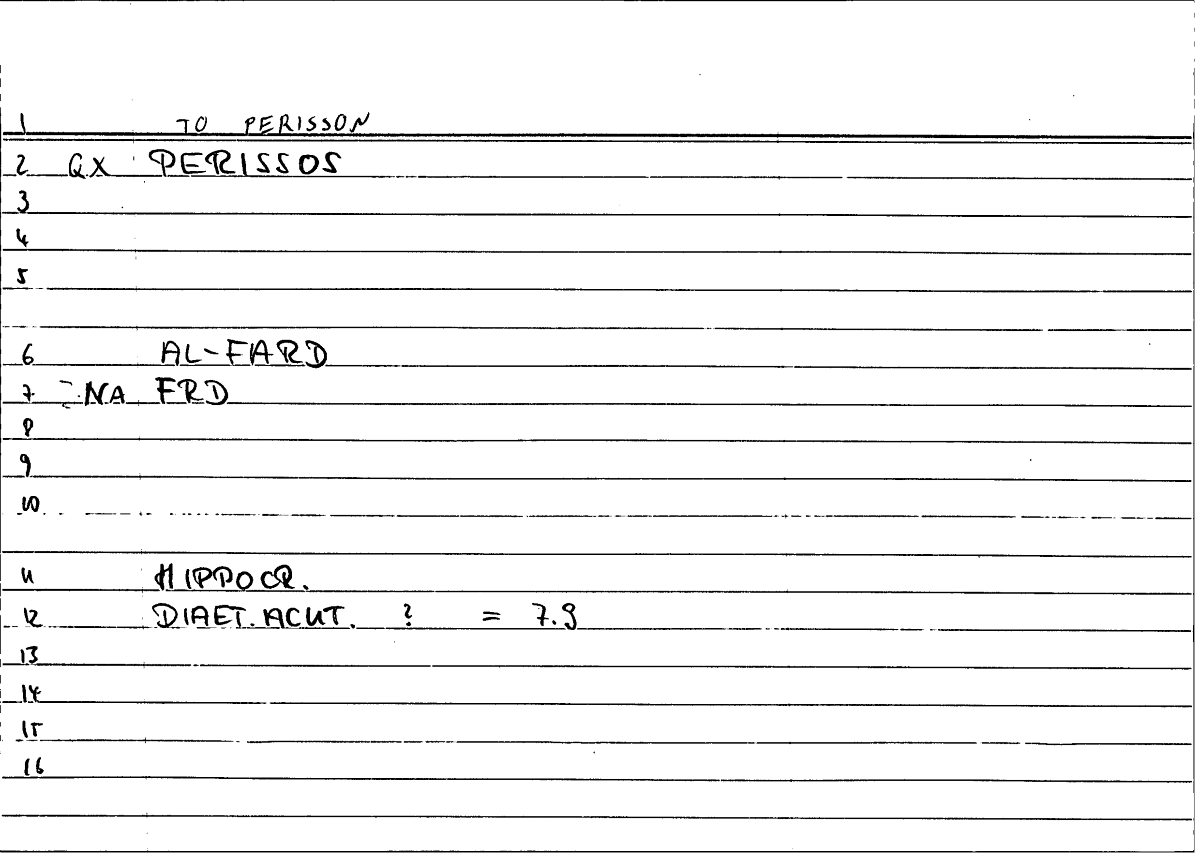 1 TO PERISSON
2 QX PERISSOS
3
4
5
6 AL-FARD
7 NA FRD
8
9
10
11 HIPPOCR.
12 DIAET. ACUT. ? = 7.9
13
14
15
16